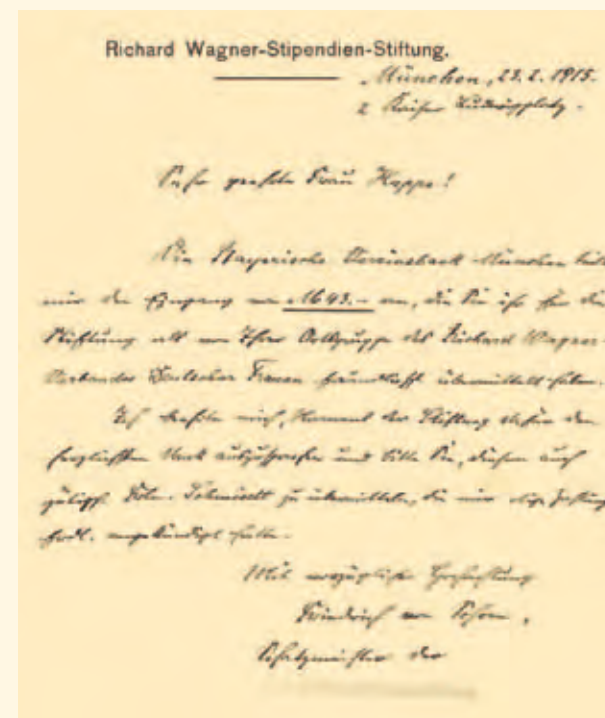 Richard Wagner-Stipendien-Stiftung.
München, 23. 2. 1915.
2 Kaiser Ludwigplatz.
Sehr geehrte Frau Happe!
Die Bayerische Vereinsbank München teilt
mir den Eingang von M 43.- an, die Sie ihr für die
Stiftung als von Ihrer Ortsgruppe des Richard Wagner-
Verbandes Deutscher Frauen freundlichst übermittelt haben.
Ich beehre mich, Namens der Stiftung dafür den
herzlichsten Dank auszusprechen und bitte Sie, diesen auch
zu übermitteln, die mir
angekündigt hatte.
Mit vorzüglicher Hochachtung
Friedrich von Schoen,
Schatzmeister der